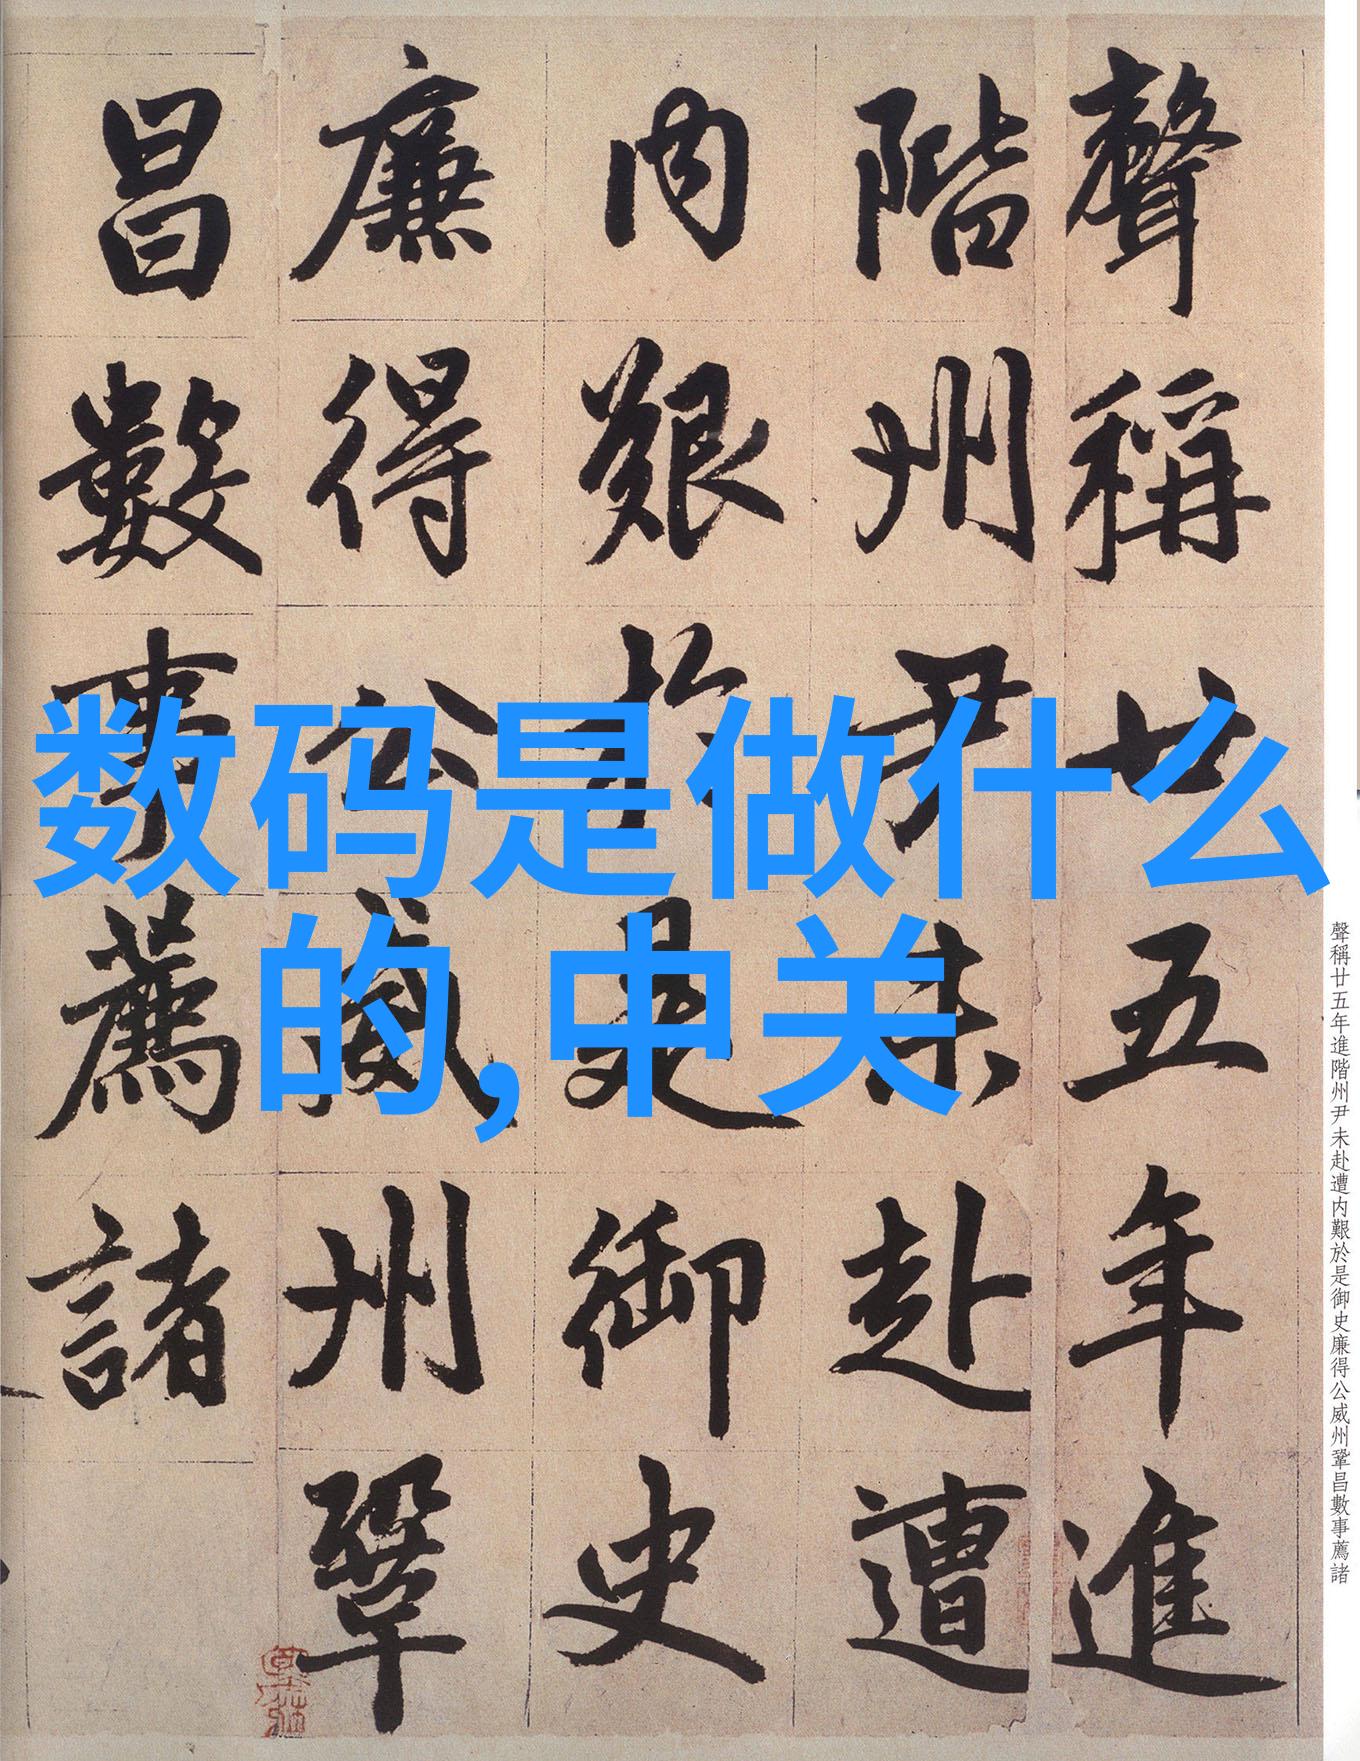 聲稱廿五年進
階州尹未赴遭
内艱於是御史
廉得公威州鞏
昌數事薦諸
数码是做什么
的,中关
聲稱廿五年進階州尹未赴遭内艱於是御史廉得公威州鞏昌數事薦諸